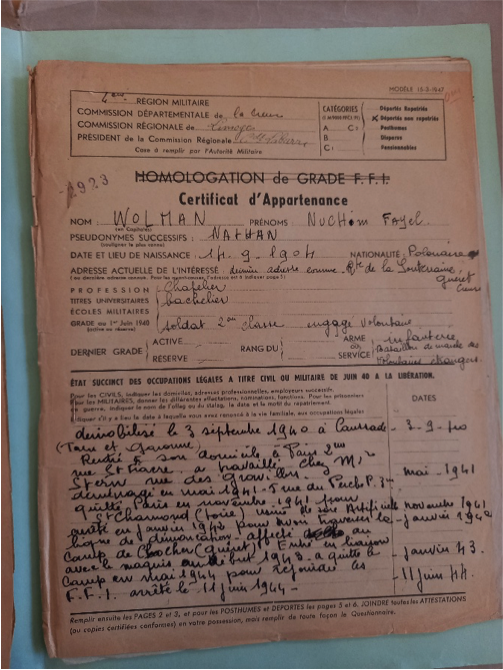 MODÈLE 15-3-1947
RÉGION MILITAIRE
COMMISSION DÉPARTEMENTALE de la Creuse
COMMISSION RÉGIONALE de Limoges
PRÉSIDENT de la Commission Régionale
Case à remplir par l'Autorité Militaire
CATÉGORIES
A C
B
C
Déportés Rapatriés
Déportés non rapatriés
Posthumes
Disparus
Pensionnables
HOMOLOGATION de GRADE F.F.I.
Certificat d'Appartenance
NOM : WOLMAN PRÉNOMS : NUCHIM FAYEL
(en Capitales)
PSEUDONYMES SUCCESSIFS : NATHAN
(souligner le plus connu)
DATE ET LIEU DE NAISSANCE : 14.9.1904 NATIONALITÉ : Polonaise
ADRESSE ACTUELLE DE L'INTÉRESSÉ : dernière adresse connue Rte de la Souterraine,
Guéret
Creuse
PROFESSION Chapelier
TITRES UNIVERSITAIRES bachelier
ÉCOLES MILITAIRES
GRADE au 1er Juin 1940 soldat 2ème classe engagé volontaire
(active ou réserve)
DERNIER GRADE ACTIVE RANG DU ARME ou SERVICE infanterie
RÉSERVE Bataillon de marche des
Volontaires étrangers
ÉTAT SUCCINCT DES OCCUPATIONS LÉGALES A TITRE CIVIL OU MILITAIRE DE JUIN 40 A LA LIBÉRATION.
Pour les CIVILS, indiquer les domiciles, adresses professionnelles, employeurs successifs.
Pour les MILITAIRES, donner les différentes affectations, nominations, fonctions. Pour les prisonniers
de guerre, indiquer le nom de l'oflag ou du stalag, la date et le motif du rapatriement.
Indiquer s'il y a lieu la date à laquelle vous avez renoncé à la vie familiale, aux occupations légales
DATES
démobilisé le 3 septembre 1940 à Caussade 3-9-40
(Tarn et Garonne)
Rentré à son domicile à Paris 2me
rue St Pierre a travaillé chez Mr
Stern rue des Gravilliers
déménagé en mai 1941 - 5 rue du 3- mai 1941
quitté Paris en novembre 1941 pour
St Chamond (Loire), usine de soie Artificielle novembre 1941
arrêté en janvier 1942 pour avoir traversé la janvier 1942
ligne de démarcation - affecté au
Camp de (Guéret). Entré en liaison
avec le maquis au début 1943 - a quitté le janvier 43.
Camp en mai 1944 pour rejoindre les
F.F.I. arrêté le 11 juin 1944 - 11 juin 44.
Remplir ensuite les PAGES 2 et 3, et pour les POSTHUMES et DEPORTES les pages 5 et 6. JOINDRE toutes les ATTESTATIONS
(ou copies certifiées conformes) en votre possession, mais remplir de toute façon le Questionnaire.